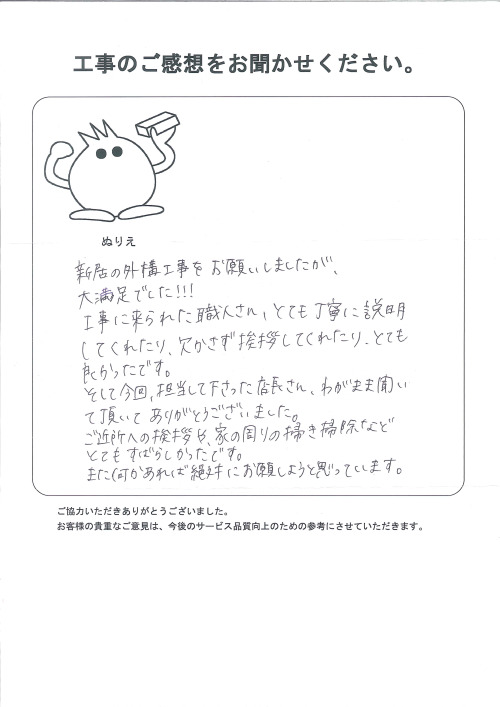 工事のご感想をお聞かせください。
ぬりえ
新居の外構工事をお願いしましたが、
大満足でした!!!
工事に来られた職人さん、とても丁寧に説明
してくれたり、欠かさず挨拶してくれたり、とても
良かったです。
そして今回、担当して下さった店長さん、わがまま聞い
て頂いてありがとうございました。
ご近所への挨拶や、家の周りの掃き掃除など
とてもすばらしかったです。
また何かあれば絶対にお願しようと思っています。
ご協力いただきありがとうございました。
お客様の貴重なご意見は、今後のサービス品質向上のための参考にさせていただきます。